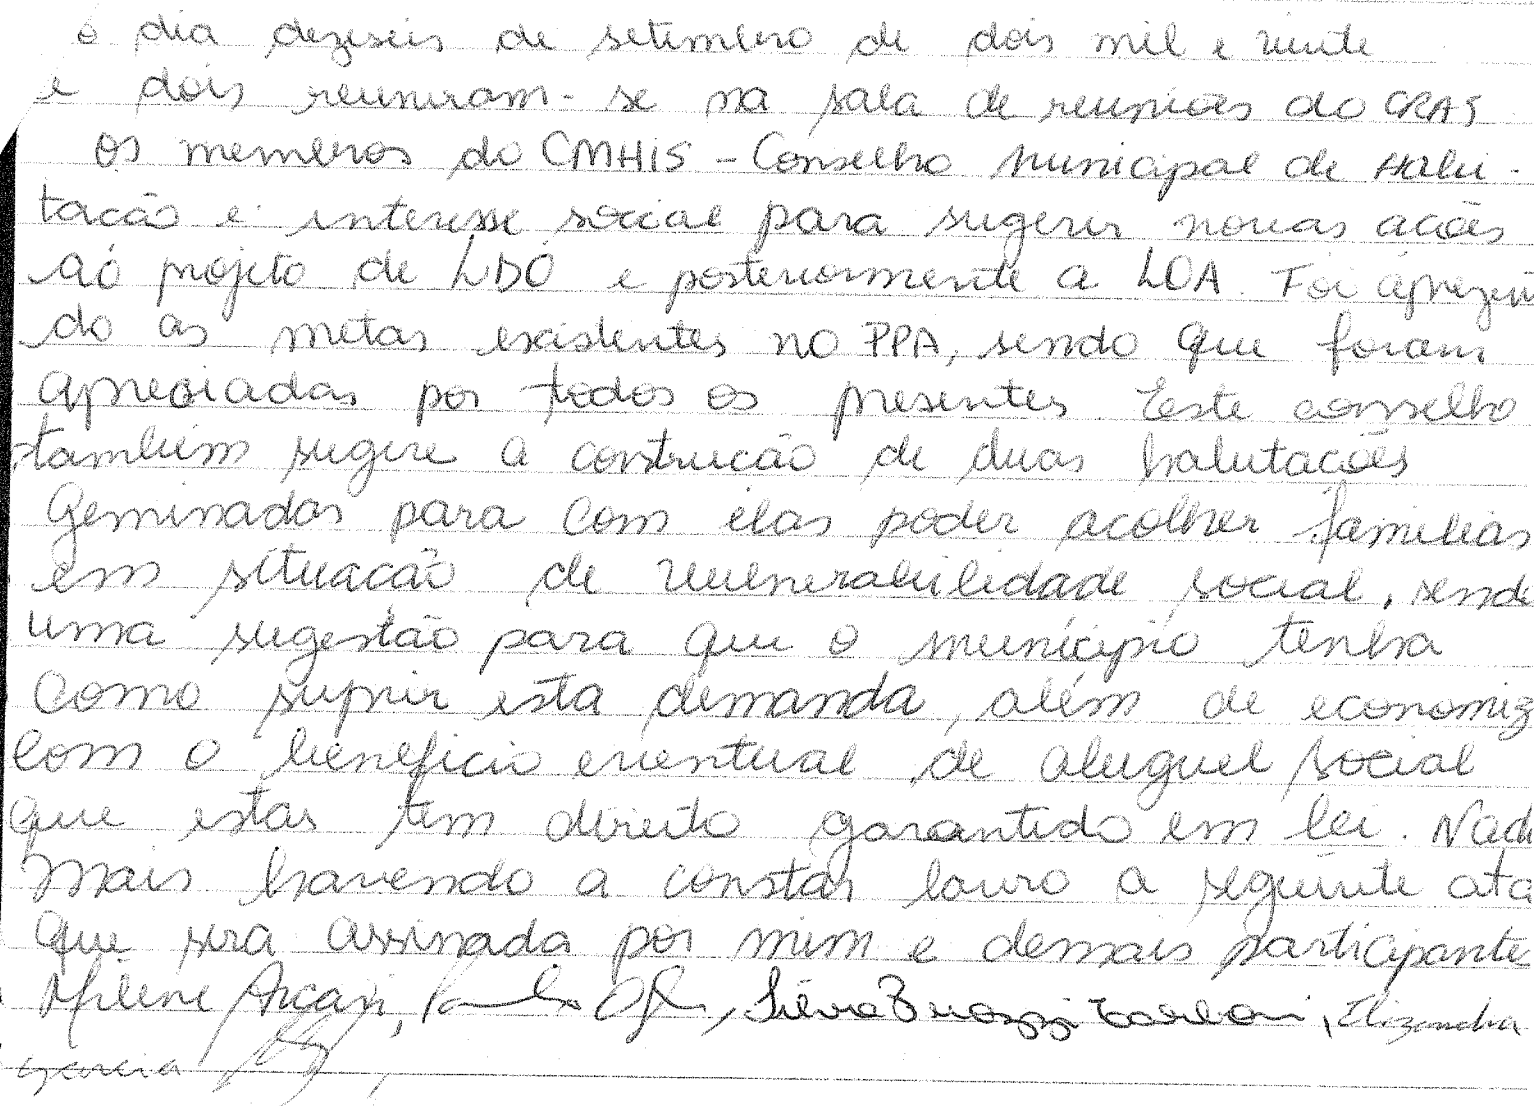 o dia dezeseis de setembro de dois mil e vinte
e dois reuniram-se na sala de reuniões do CRAS
os membros do CMHIS - Conselho Municipal de Habi-
tacão e interesse social para sugerir novas acões
ao projeto de LDO e posteriormente a LOA. Foi aprezen
do as metas existentes no PPA, sendo que foram
apreciadas por todos os presentes. Este conselho
também sugere a construcão de duas habitacões
Geminadas para com elas poder acolher famílias
em situacão de vulnerabilidade social, send
uma sugestão para que o município tenha
Como suprir esta demanda, além de economiz
com o benefício eventual de aluguel social
que estas tem direito garantido em lei. Nad
mais havendo a constar lavro a seguinte ata
que sera assinada por mim e demais participante
Milene Arcari, Silvia Elizandra
Garcia